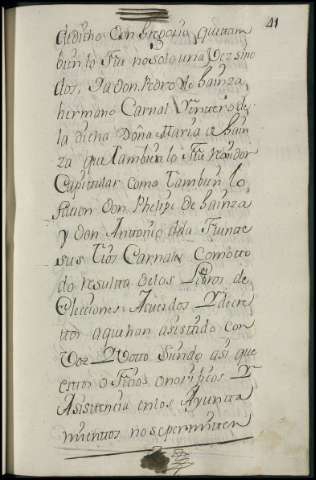 41
dedicho Con Gregorio, quetam
bien lo fue no solo una Vez sino
dos, Ya don Pedro de Bainza,
hermano Carnal Ventero de
la dicha Doña Maria de Bain
za que tambien lo fue Rexidor
Capitular como tambien lo
fueron Don Phelipe de Bainza
y don Antonio dela Fuente
sus tios Carnales Como to
do resulta delos Libros de
Elecciones Acuerdos Y decre
tos aque han asistido con
Voz Y Voto Siendo asi que
estos oficios onorificos Y
Asistencia enlos Ayunta
mientos no se permiten